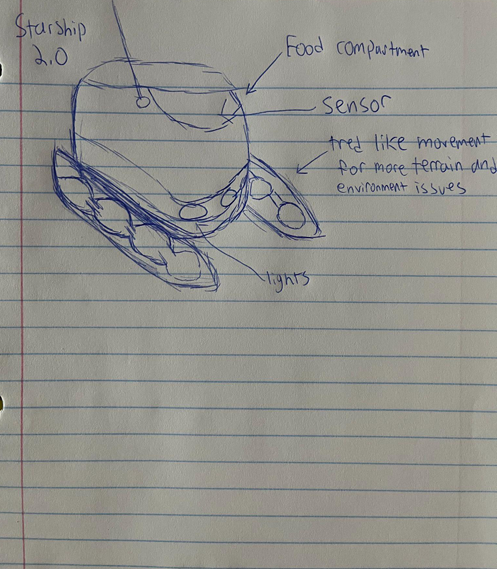 Starship
2.0
Food compartment
sensor
tred like movement
for more terrain and
environment issues
lights